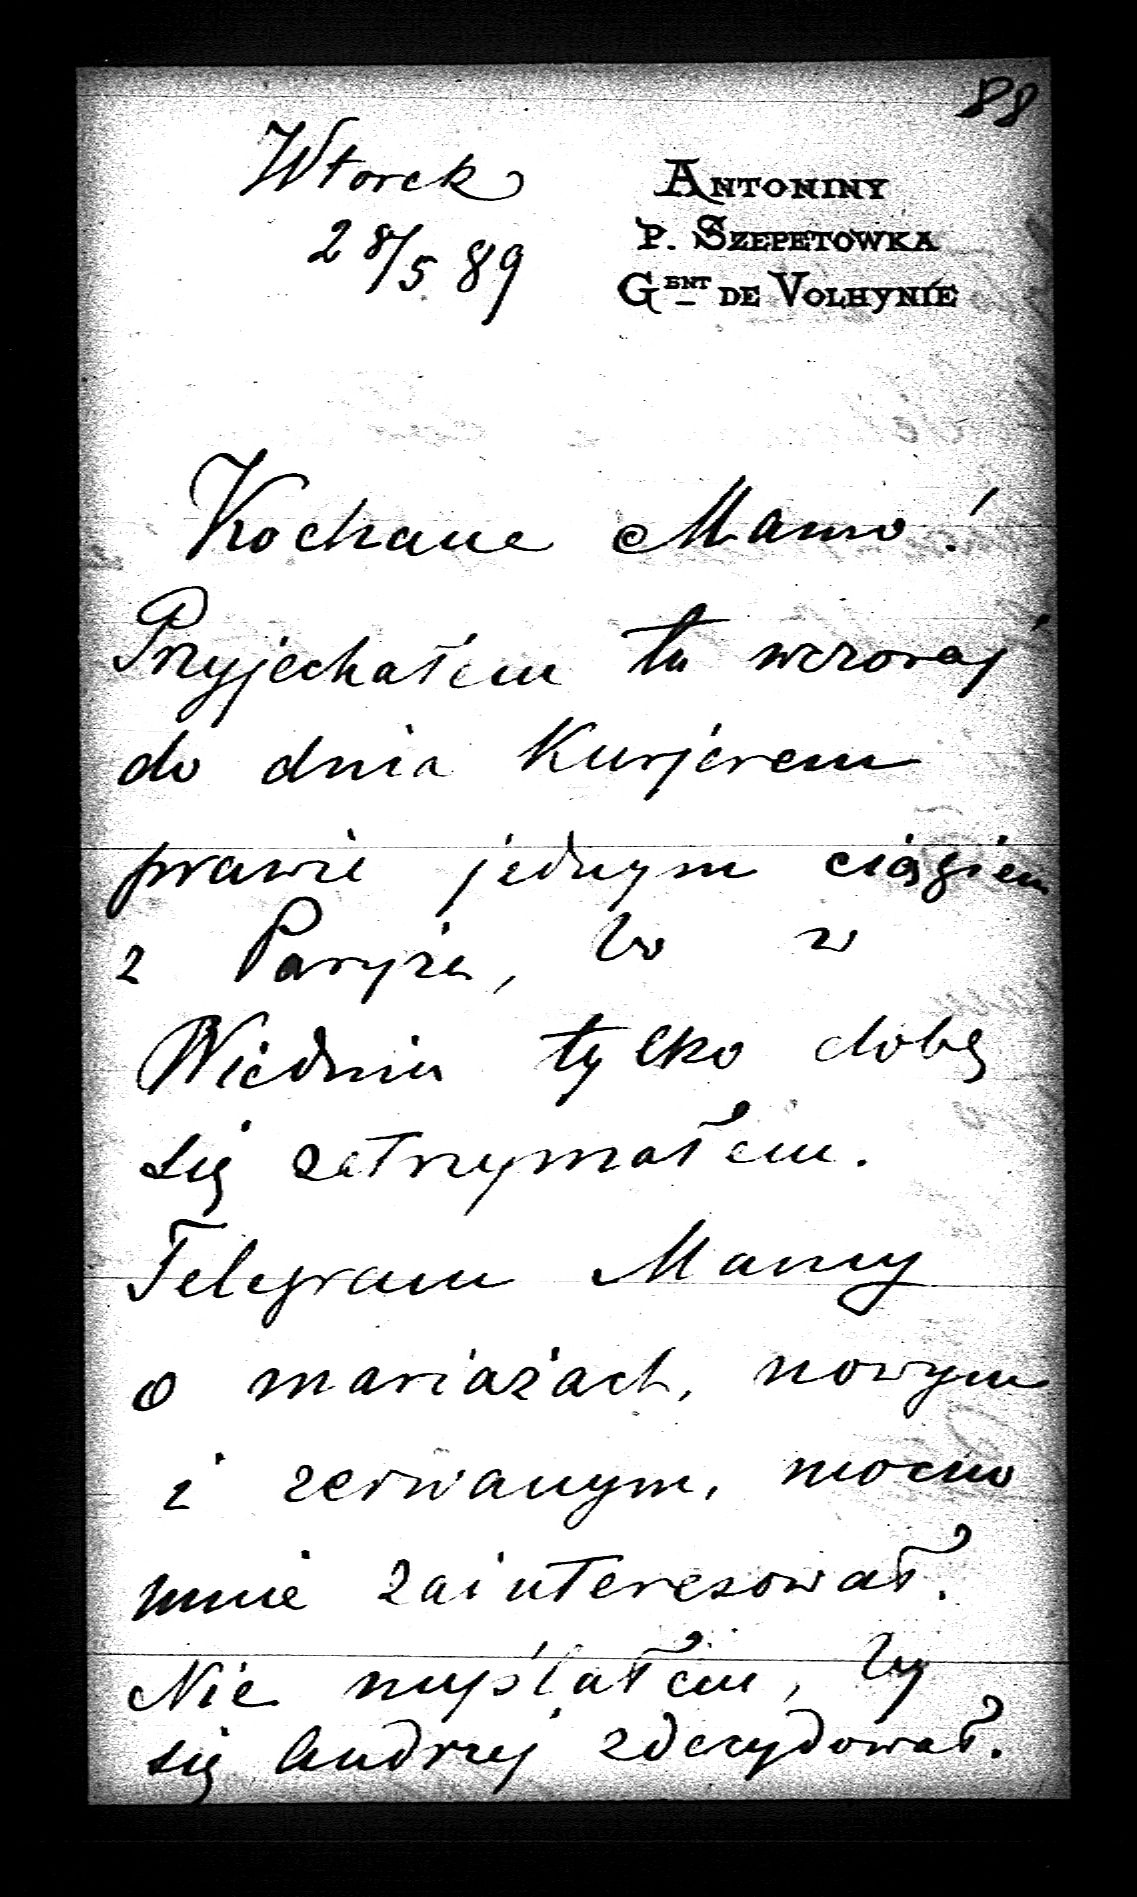 88
Wtorek
28/5 89
ANTONINY
P. SZEPETOWKA
GBNT DE VOLHYNIE
Kochana Mamo!
Przyjechałem tu wczoraj
do dnia Kurjerem
prawie jednym ciągiem
z Paryża, bo w
Wiedniu tylko dobę
się zatrzymałem.
Telegram Mamy
o mariażach, nowym
i zerwanym, mocno
mnie zainteresował.
Nie myślałem, by
się Andrzej zdecydował.